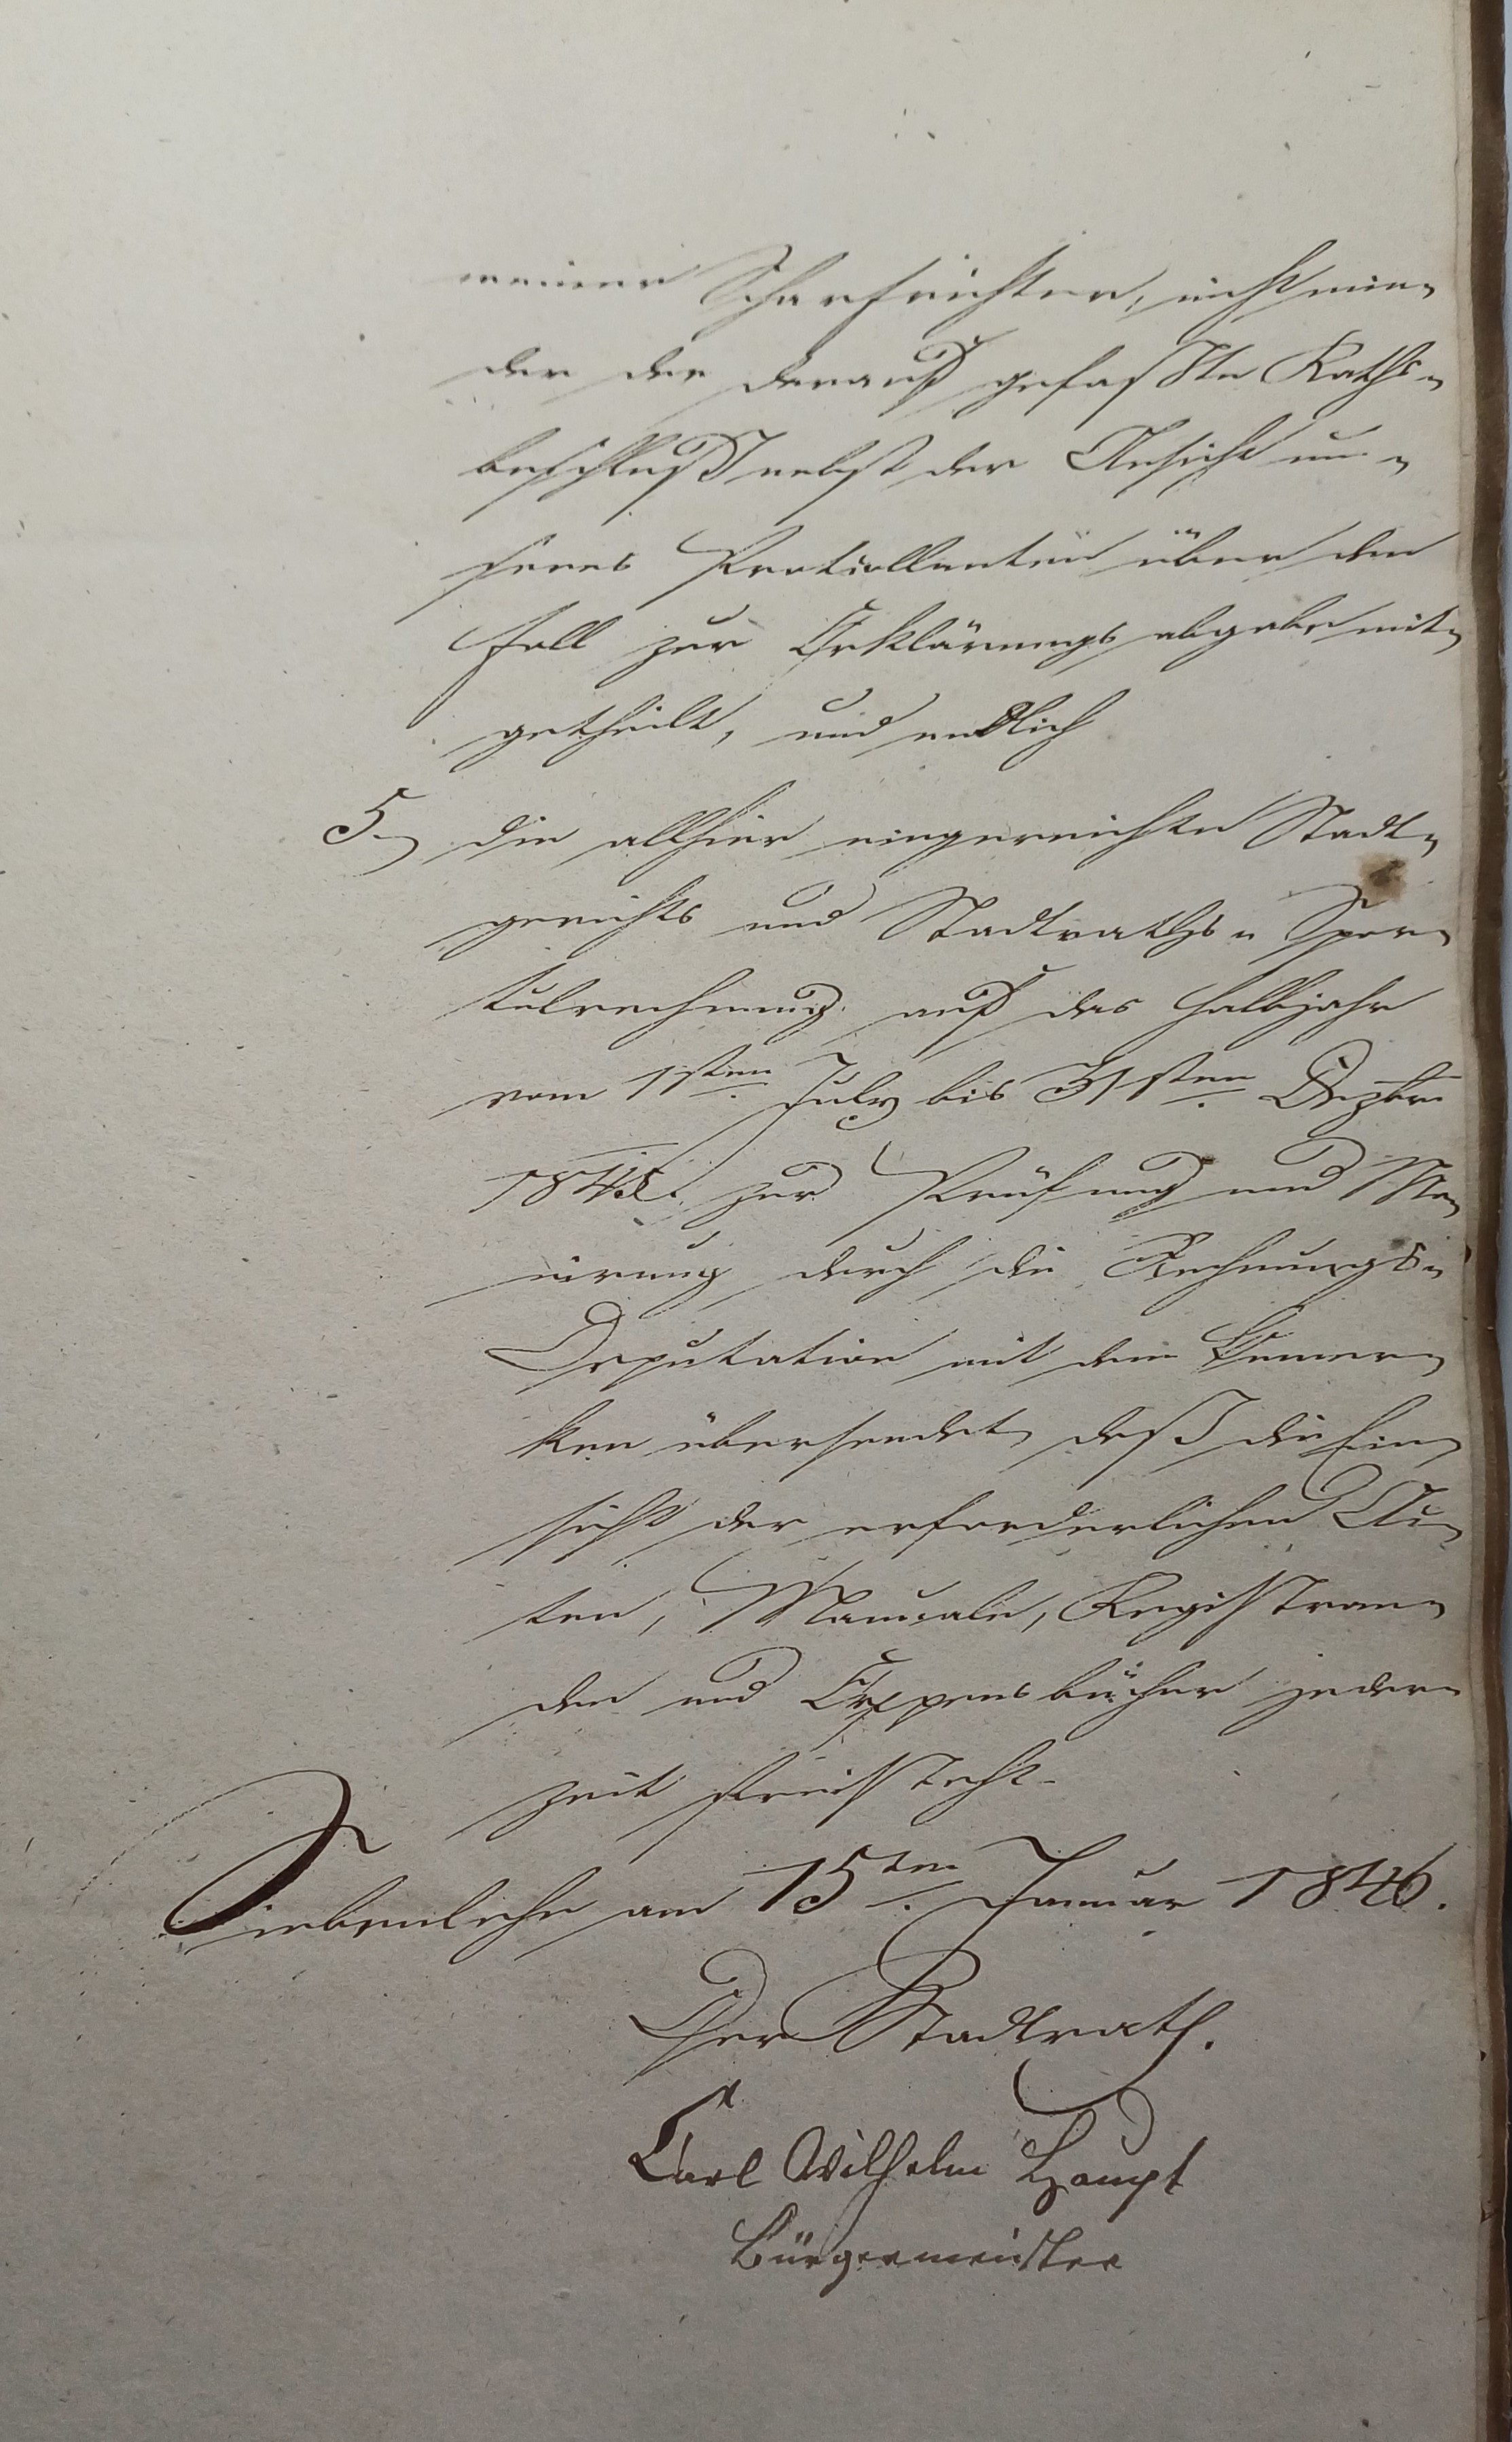 Scharfrichter, nicht min-
der der darauf gefaßte Raths-
beschluß nebst der Ansicht un-
seres Protocollanten über den
Fall zur Erklärungsabgabe mit-
getheilt, und endlich
5., die allhier eingereichte Stadt-
gerichts und Stadtraths- Spor-
tulrechnung auf das Halbjahr
vom 1sten July bis 31sten Dezbr.
1845. zur Prüfung und Mo-
nirung durch die Rechnungs-
Deputation mit dem Bemer-
ken übersendet, daß die Ein-
sicht der erforderlichen Ac-
ten, Manuale, Registran-
den und Expensbücher jeder-
zeit freisteht.
Siebenlehn am 15ten Januar 1846.
Der Stadtrath.
Carl Wilhelm Haupt
Bürgermeister